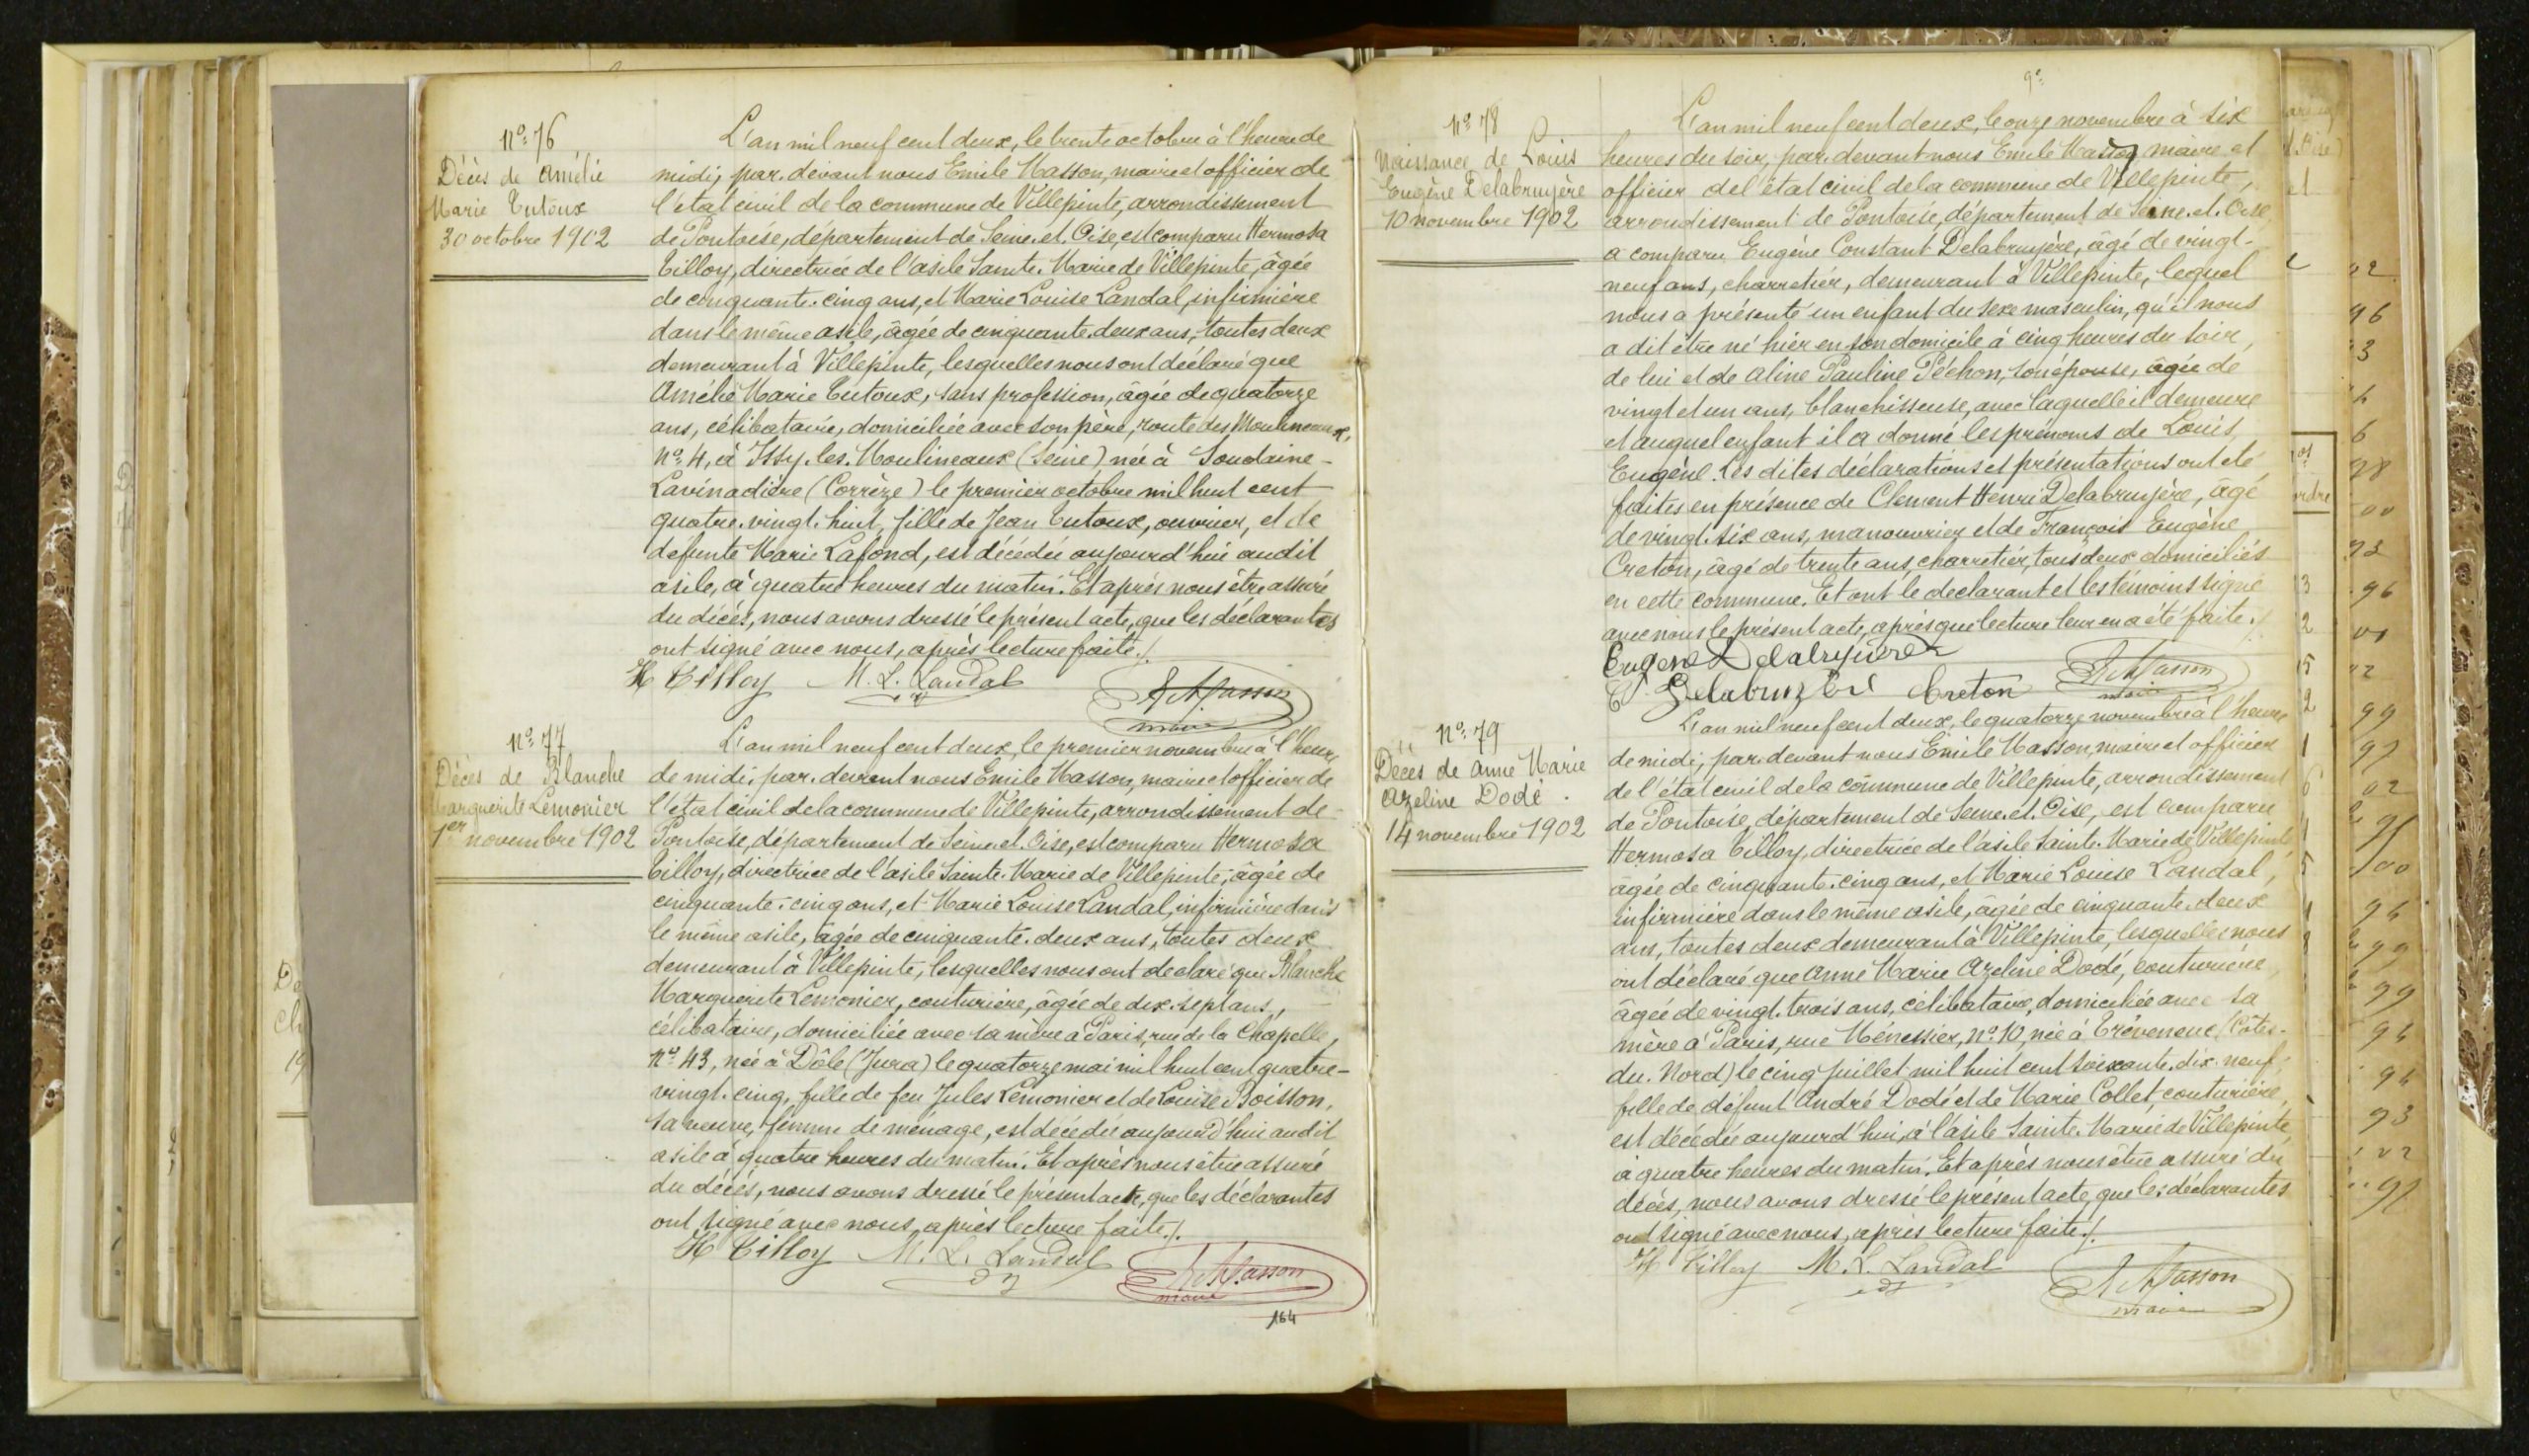 nº 76
Décès de Amélie
Marie Tutoux
30 octobre 1902
L'an mil neuf cent deux, le trente octobre à l'heure de
midi, par devant nous Emile Masson, maire et officier de
l'état civil de la commune de Villepinte, arrondissement
de Pontoise, département de Seine et Oise, est comparu Hermosa
Tilloy, directrice de l'asile Sainte Marie de Villepinte, âgée
de cinquante cinq ans, et Marie Louise Landal, infirmière
dans le même asile, âgée de cinquante deux ans, toutes deux
demeurant à Villepinte, lesquelles nous ont déclaré que
Amélie Marie Tutoux, sans profession, âgée de quatorze
ans, célibataire, domiciliée avec son père, route des Moulineaux,
nº 4, à Issy-les-Moulineaux (Seine), née à Soudaine-
Lavinadière (Corrèze) le premier octobre mil huit cent
quatre-vingt-huit, fille de Jean Tutoux, ouvrier, et de
défunte Marie Lafond, est décédée aujourd'hui audit
asile, à quatre heures du matin. Et après nous être assuré
du décès, nous avons dressé le présent acte, que les déclarantes
ont signé avec nous, après lecture faite ./.
H Tilloy M. L. Landal Masson
maire
nº 77
Décès de Blanche
Marguerite Lemonier
1er novembre 1902
L'an mil neuf cent deux, le premier novembre à l'heure
de midi, par devant nous Emile Masson, maire et officier de
l'état civil de la commune de Villepinte, arrondissement de
Pontoise, département de Seine et Oise, est comparu Hermosa
Tilloy, directrice de l'asile Sainte Marie de Villepinte, âgée de
cinquante-cinq ans, et Marie Louise Landal, infirmière dans
le même asile, âgée de cinquante-deux ans, toutes deux
demeurant à Villepinte, lesquelles nous ont déclaré que Blanche
Marguerite Lemonier, couturière, âgée de dix-sept ans,
célibataire, domiciliée avec sa mère à Paris, rue de la Chapelle,
nº 43, née à Dôle (Jura) le quatorze mai mil huit cent quatre-
vingt-cinq, fille de feu Jules Lemonier et de Louise Boisson,
sa veuve, femme de ménage, est décédée aujourd'hui audit
asile à quatre heures du matin. Et après nous être assuré
du décès, nous avons dressé le présent acte, que les déclarantes
ont signé avec nous, après lecture faite ./.
H Tilloy M. L. Landal Masson
maire
164
nº 78
Naissance de Louis
Eugène Delabruyère
10 novembre 1902
L'an mil neuf cent deux, le onze novembre à six
heures du soir, par devant nous Emile Masson maire et
officier de l'état civil de la commune de Villepinte,
arrondissement de Pontoise, département de Seine et Oise,
a comparu Eugène Constant Delabruyère, âgé de vingt-
neuf ans, charretier, demeurant à Villepinte, lequel
nous a présenté un enfant du sexe masculin, qu'il nous
a dit être né hier en son domicile à cinq heures du soir,
de lui et de Aline Pauline Péchon, son épouse, âgée de
vingt et un ans, blanchisseuse, avec laquelle il demeure
et auquel enfant il a donné les prénoms de Louis,
Eugène. Les dites déclarations et présentations ont été
faites en présence de Clement Henri Delabruyère, âgé
de vingt-six ans, manouvrier et de François Eugène
Creton, âgé de trente ans, charretier, tous deux domiciliés
en cette commune. Et ont le déclarant et les témoins signé
avec nous le présent acte, après que lecture leur en a été faite ./.
Eugene Delabruyère
Delabruyère Creton Masson
maire
nº 79
Décès de Anne Marie
Azeline Dodé
14 novembre 1902
L'an mil neuf cent deux, le quatorze novembre à l'heure
de midi, par devant nous Emile Masson, maire et officier
de l'état civil de la commune de Villepinte, arrondissement
de Pontoise, département de Seine et Oise, est comparu
Hermosa Tilloy, directrice de l'asile Sainte Marie de Villepinte
âgée de cinquante-cinq ans, et Marie Louise Landal,
infirmière dans le même asile, âgée de cinquante-deux
ans, toutes deux demeurant à Villepinte, lesquelles nous
ont déclaré que Anne Marie Azeline Dodé, couturière,
âgée de vingt-trois ans, célibataire, domiciliée avec sa
mère à Paris, rue Ménessier, nº 10, née à Tréveneuc (Côtes-
du-Nord) le cinq juillet mil huit cent soixante-dix-neuf,
fille de défunt André Dodé et de Marie Collet, couturière,
est décédée aujourd'hui, à l'asile Sainte Marie de Villepinte
à quatre heures du matin. Et après nous être assuré du
décès, nous avons dressé le présent acte, que les déclarantes
ont signé avec nous, après lecture faite ./.
H Tilloy M. L. Landal Masson
maire